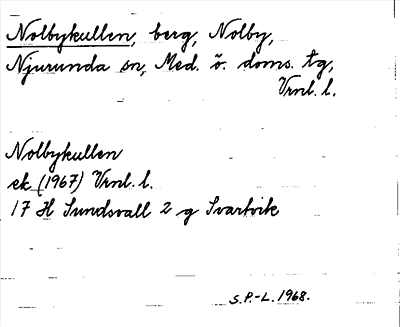 Nolbykullen, berg, Nolby,
Njurunda sn, Med. ö. doms. tg,
Vrnl. l.
Nolbykullen
ek (1967) Vrnl. l.
17 H Sundsvall 2 g Svartvik
S.P.-L. 1968.